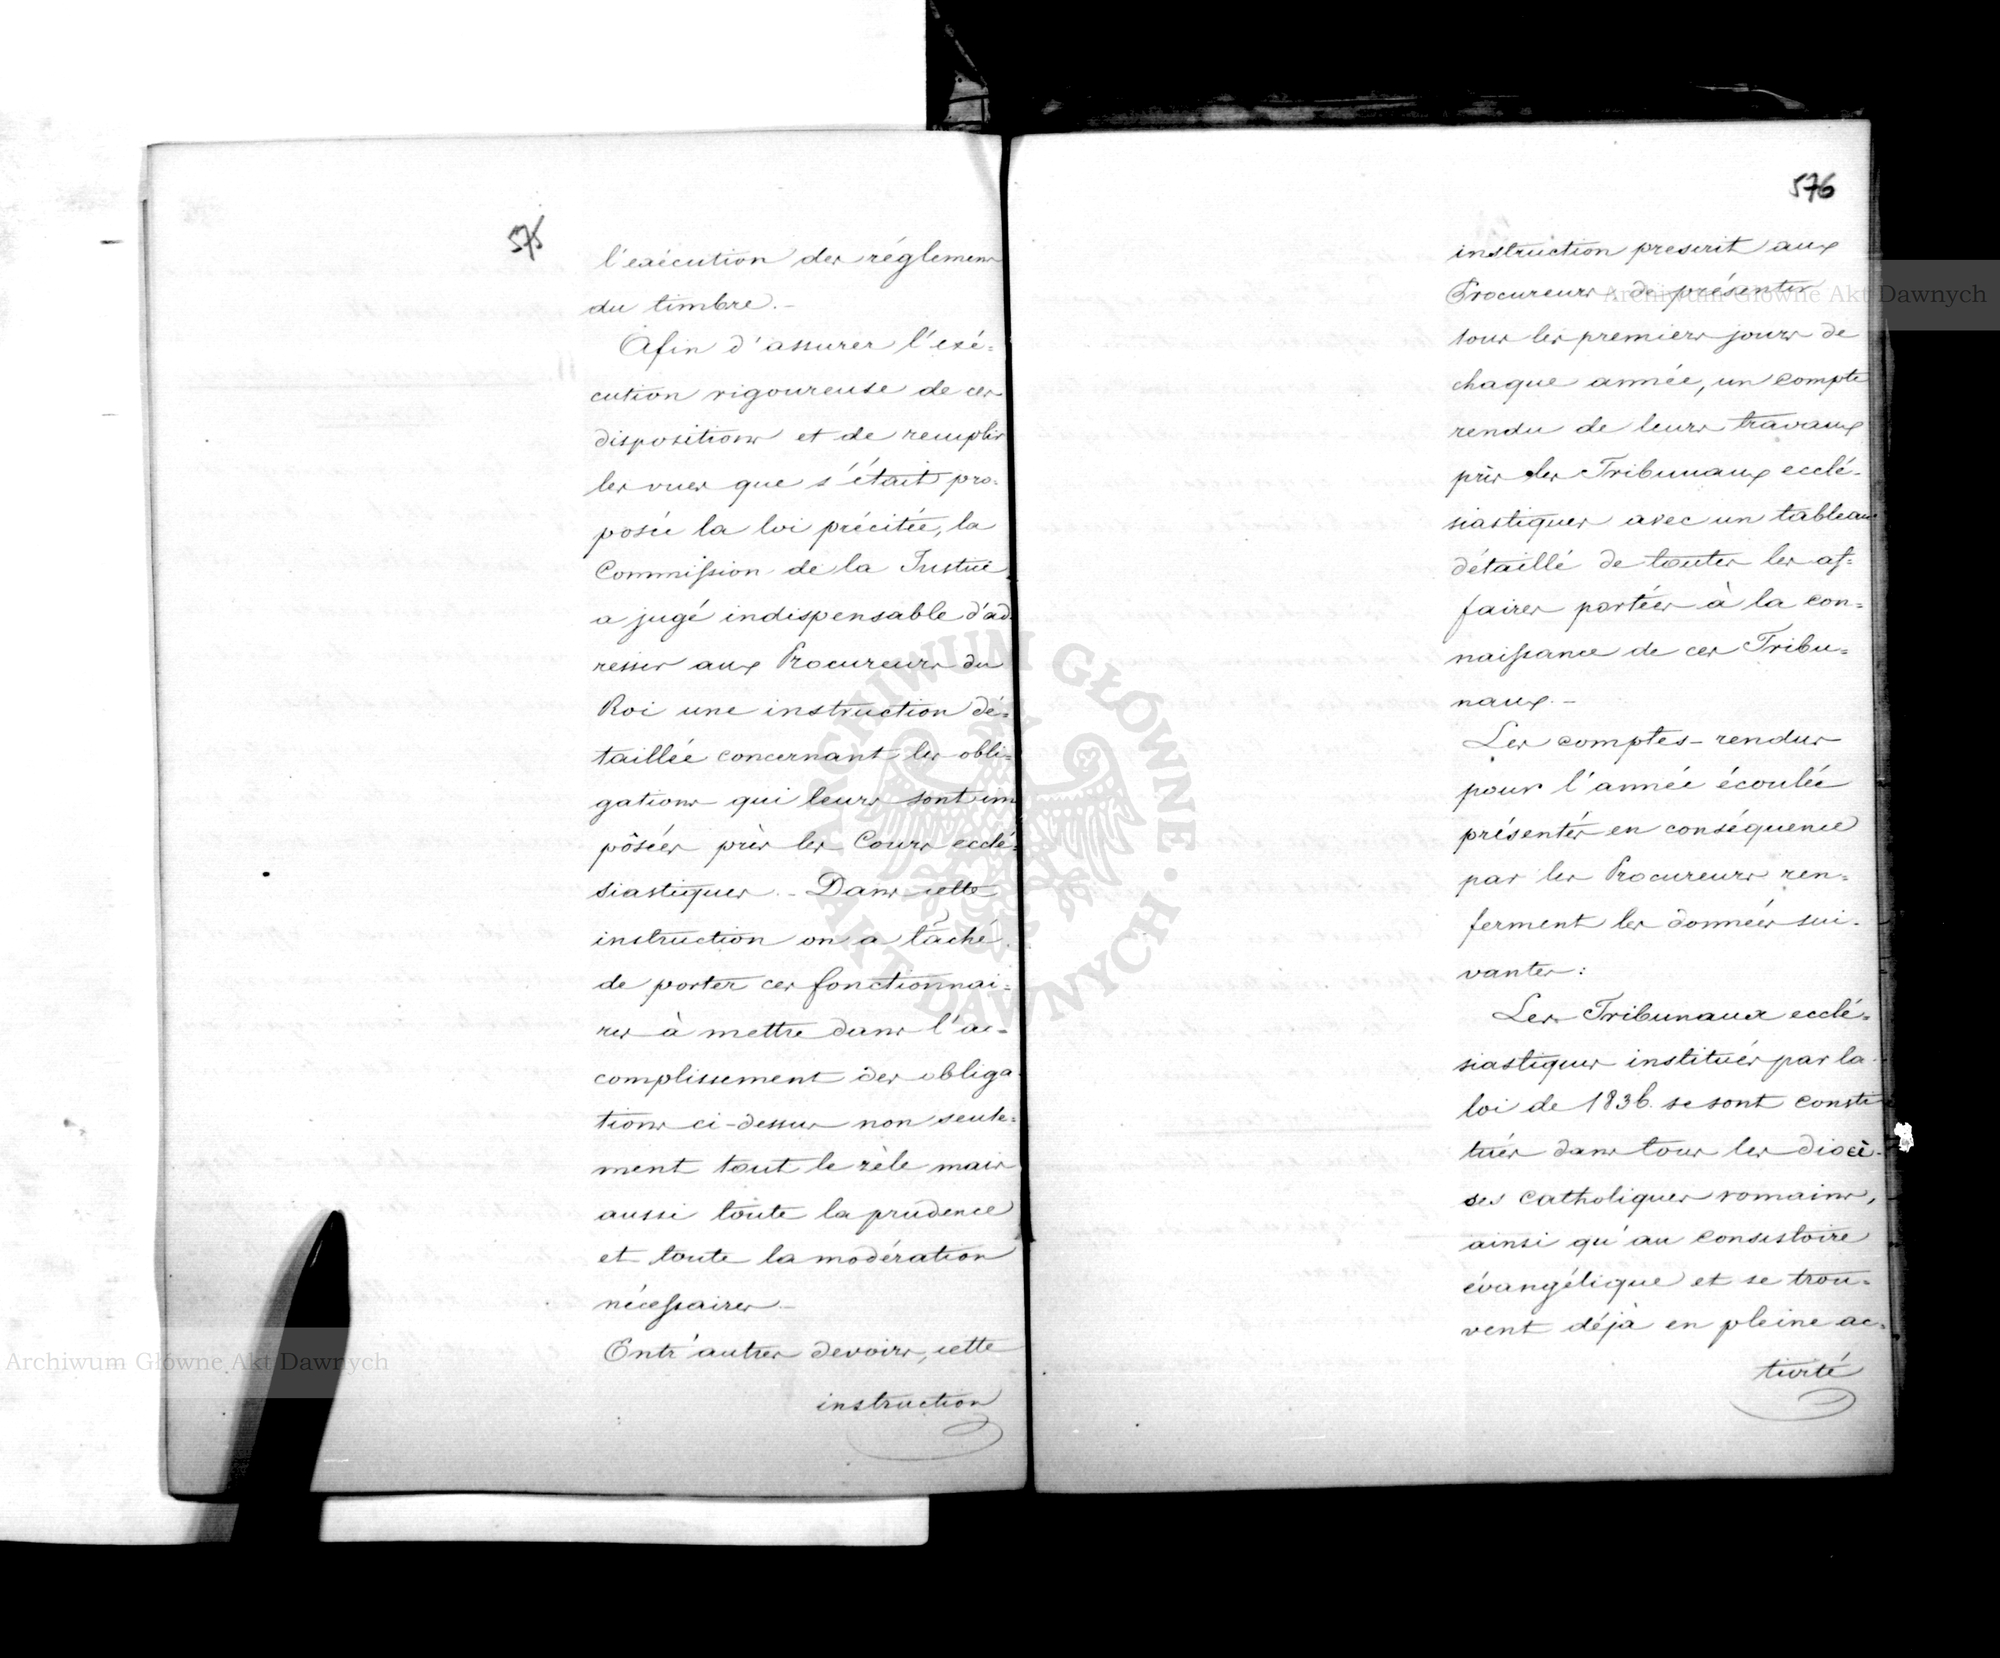 575
l'exécution des réglemens
du timbre. -
Afin d'assurer l'exé-
cution rigoureuse de ces
dispositions et de remplir
les vues que s'était pro-
posée la loi précitée, la
Commission de la Justice
a jugé indispensable d'ad-
resser aux Procureurs du
Roi une instruction dé-
taillée concernant les obli-
gations qui leurs sont im
pôsées près les Cours ecclé-
siastiques. - Dans cette
instruction on a tâché
de porter ces fonctionnai-
res à mettre dans l'ac-
complissement des obliga-
tions ci-dessus non seule-
ment tout le zèle mais
aussi toute la prudence
et toute la modération
nécessaires. -
Entr'autres devoirs, cette
instruction
576
instruction prescrit aux
Procureurs de présenter
tous les premiers jours de
chaque année, un compte
rendu de leurs travaux
près les Tribunaux ecclé-
siastiques avec un tableau
détaillé de toutes les af-
faires portées à la con-
naissance de ces Tribu-
naux. -
Les comptes-rendus
pour l'année écoulée
présentés en conséquence
par les Procureurs ren-
ferment les données sui-
vantes :
Les Tribunaux ecclé-
siastiques institués par la
loi de 1836. se sont consti
tués dans tous les diocè-
ses catholiques romains,
ainsi qu'au consistoire
évangélique et se trou-
vent déjà en pleine ac-
tivité
Archiwum Główne Akt Dawnych
Archiwum Główne Akt Dawnych
ARCHIWUM GŁÓWNE AKT DAWNYCH